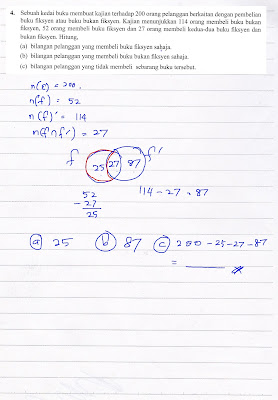 4. Sebuah kedai buku membuat kajian terhadap 200 orang pelanggan berkaitan dengan pembelian
buku fiksyen atau buku bukan fiksyen. Kajian menunjukkan 114 orang membeli buku bukan
fiksyen, 52 orang membeli buku fiksyen dan 27 orang membeli kedua-dua buku fiksyen dan
bukan fiksyen. Hitung,
(a) bilangan pelanggan yang membeli buku fiksyen sahaja.
(b) bilangan pelanggan yang membeli buku bukan fiksyen sahaja.
(c) bilangan pelanggan yang tidak membeli sebarang buku tersebut.
n(ε) = 200.
n(f) = 52
n(f)' = 114
n(f∩f') = 27
f f'
25 27 87
52
- 27
25
114 - 27 = 87
(a) 25 (b) 87 (c) 200 - 25 - 27 - 87
=